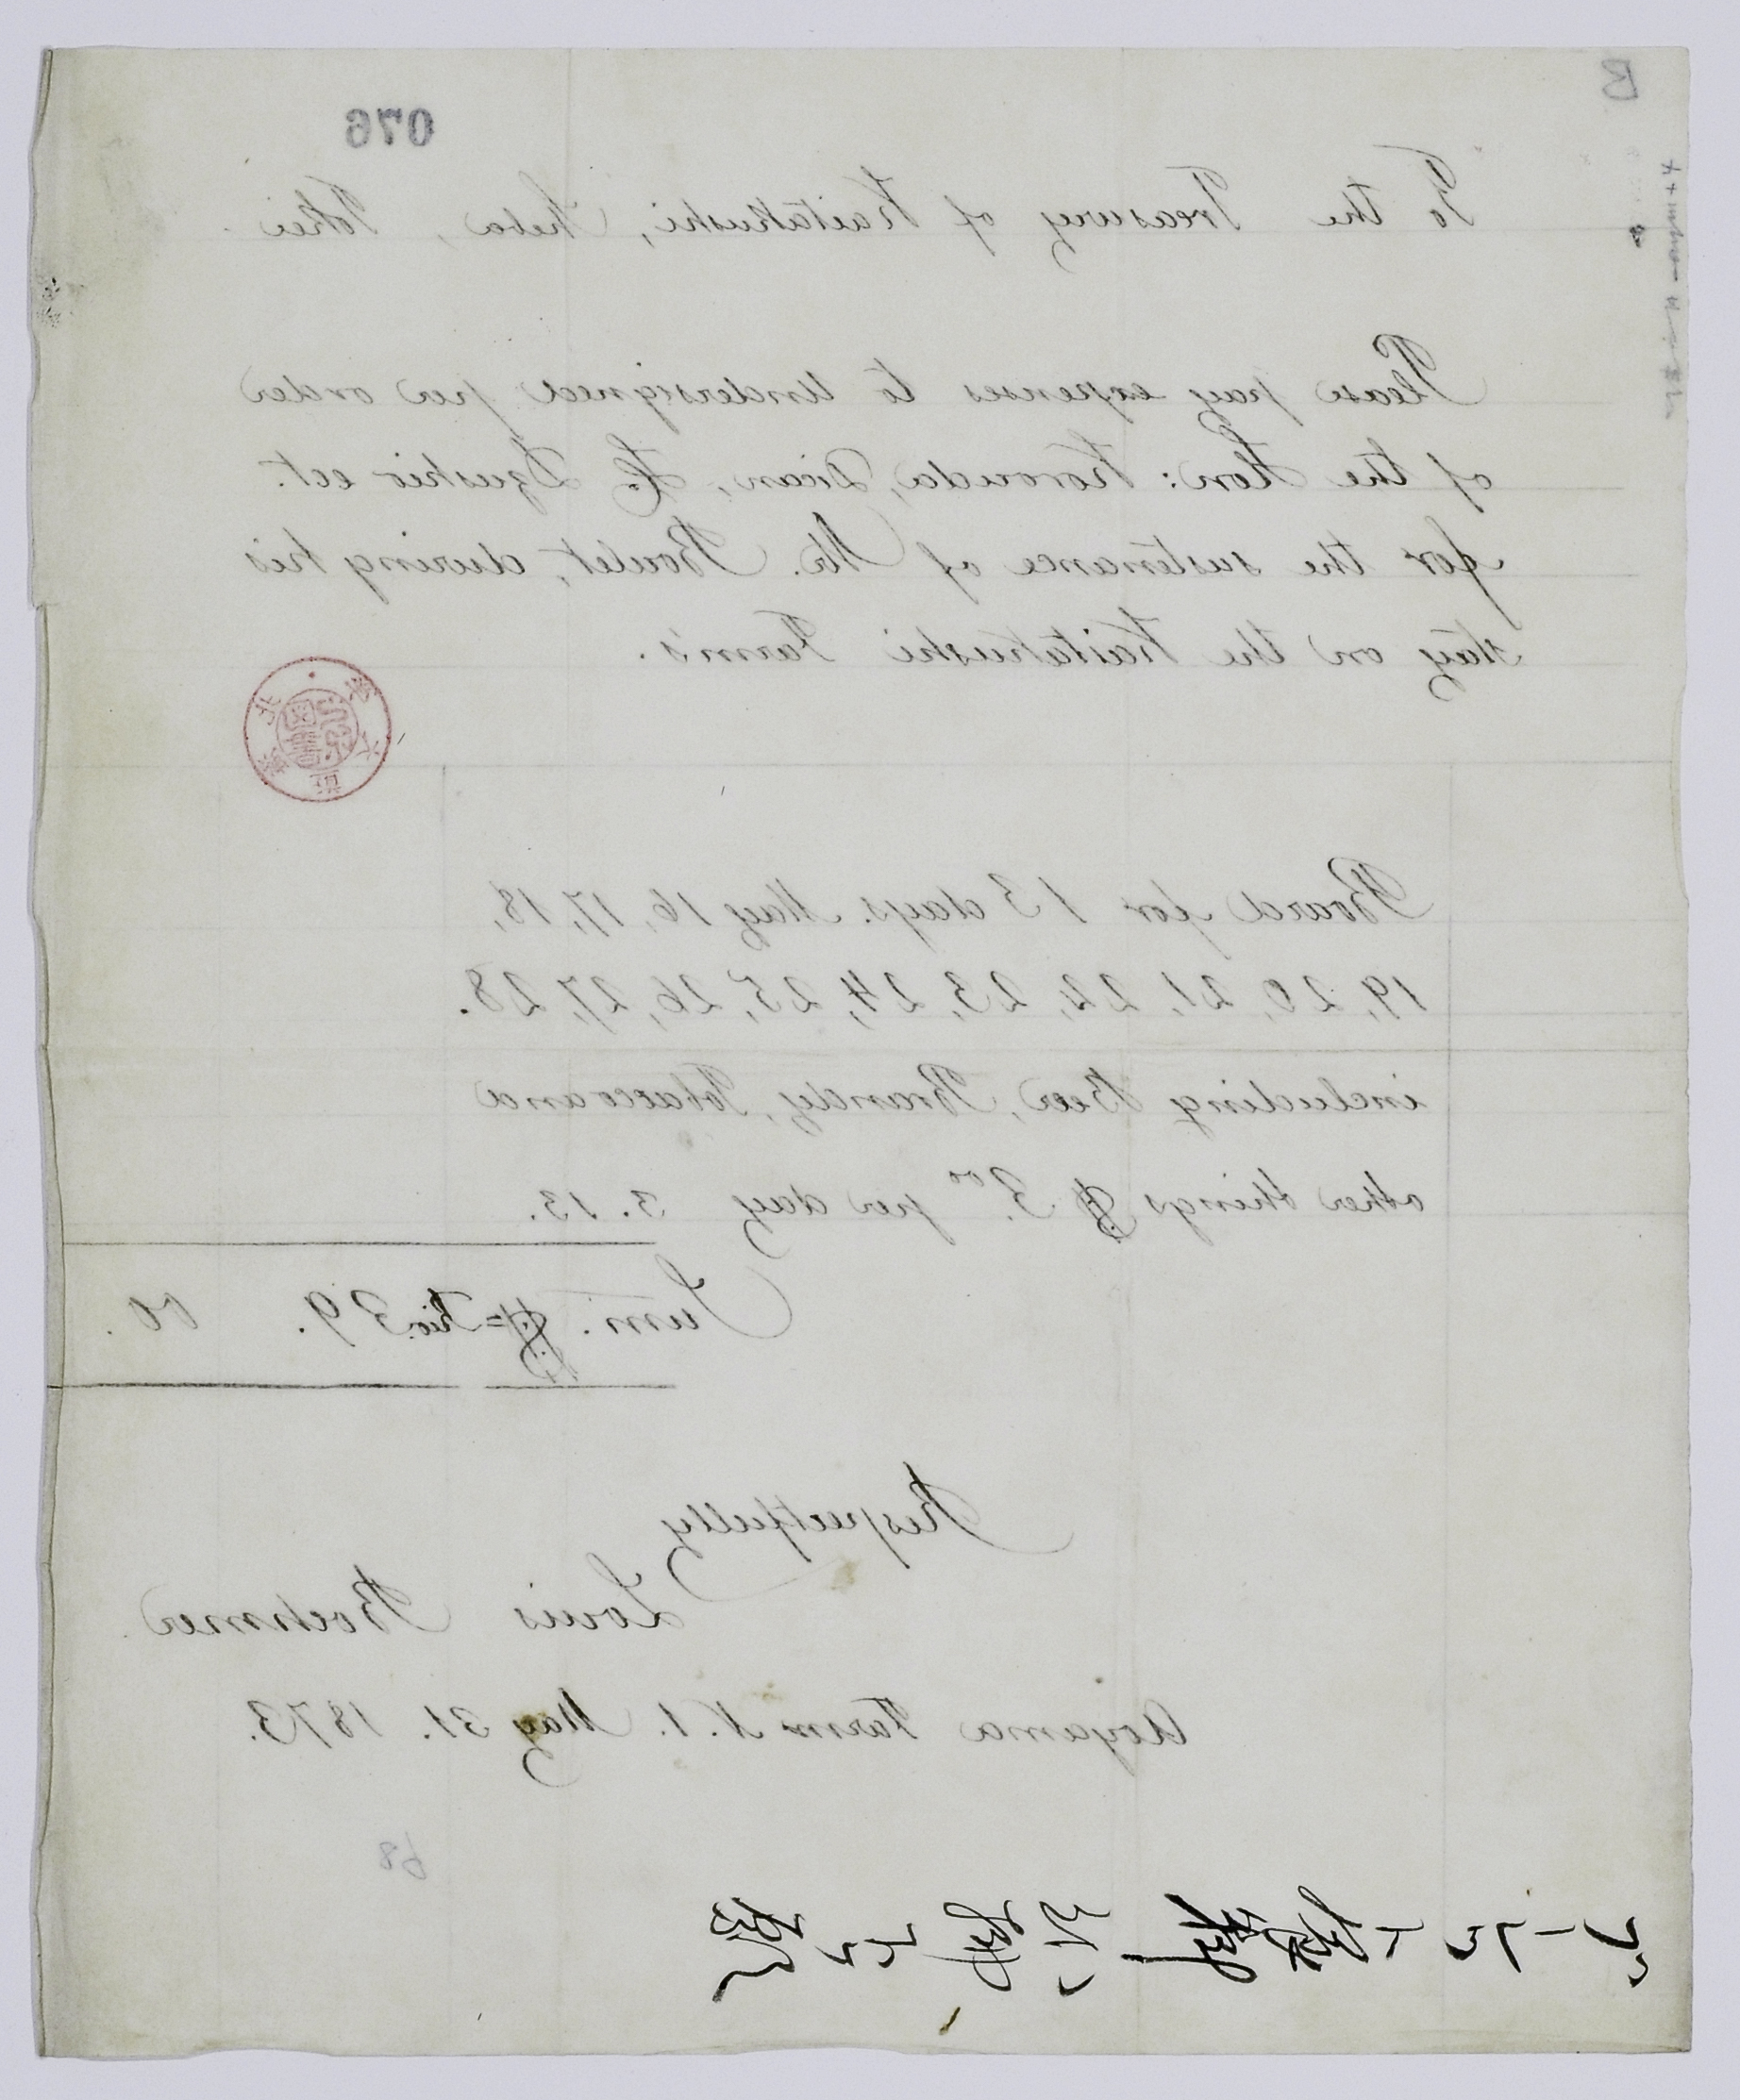 B
076
To the Treasury of Kaitakushi, Sheba, Tokei.
Please pay expenses to undersigned per order
of the Hon: Korouda, Dican, H. Dzushio ect.
for the sustenance of Mr. Boulet, during his
stay on the Kaitakushi Farms.
Board for 13 days. May 16, 17, 18,
19, 20, 21, 22, 23, 24, 25, 26, 27, 28.
including Beer, Brandy, Tobacco and
other things $ 3.00 per day 3. 13.
Sum. $ = Rio. 39. 00.
Respectfully
Louis Boehmer
Aoyama Farm N. 1. May 31. 1873.
68